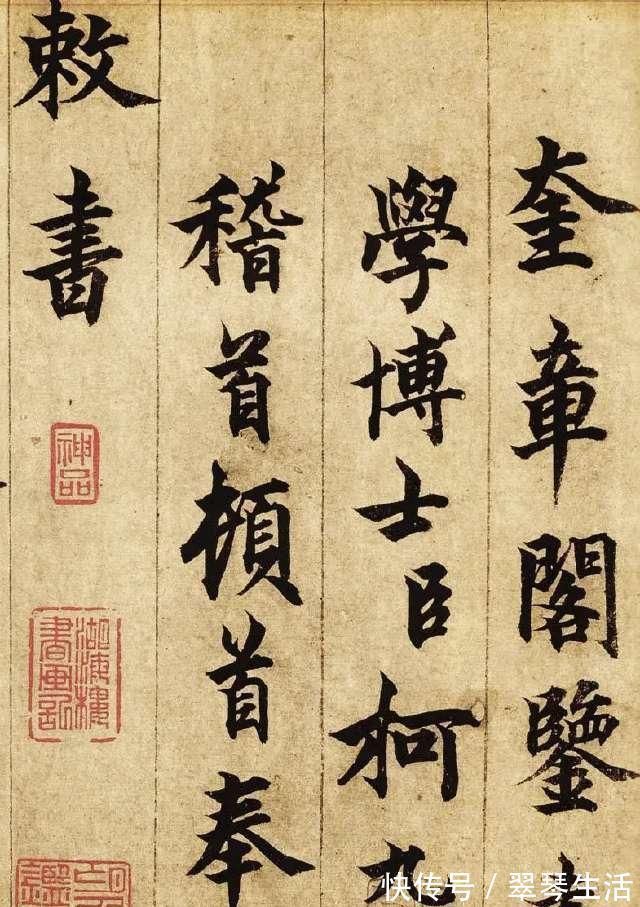 奎章閣鑒
學博士臣柯九
稽首頓首奉
敕書
神品
湖海樓
書畫
快传号 / 翠琴生活